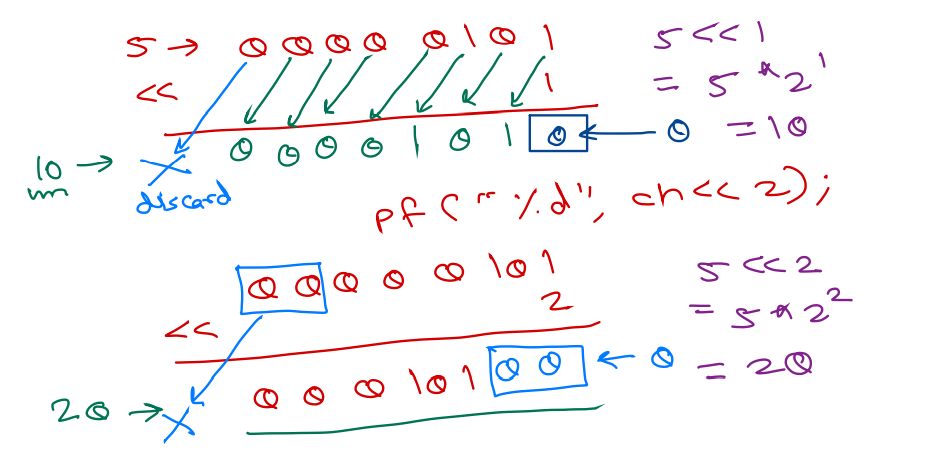 5 → 0 0 0 0 0 1 0 1
<< 1
10 → 0 0 0 0 1 0 1 0 ← 0
discard
5 << 1
= 5 * 2^1
= 10
pf ("%d", ch << 2);
0 0 0 0 0 1 0 1
<< 2
20 → 0 0 0 1 0 1 0 0 ← 0
5 << 2
= 5 * 2^2
= 20